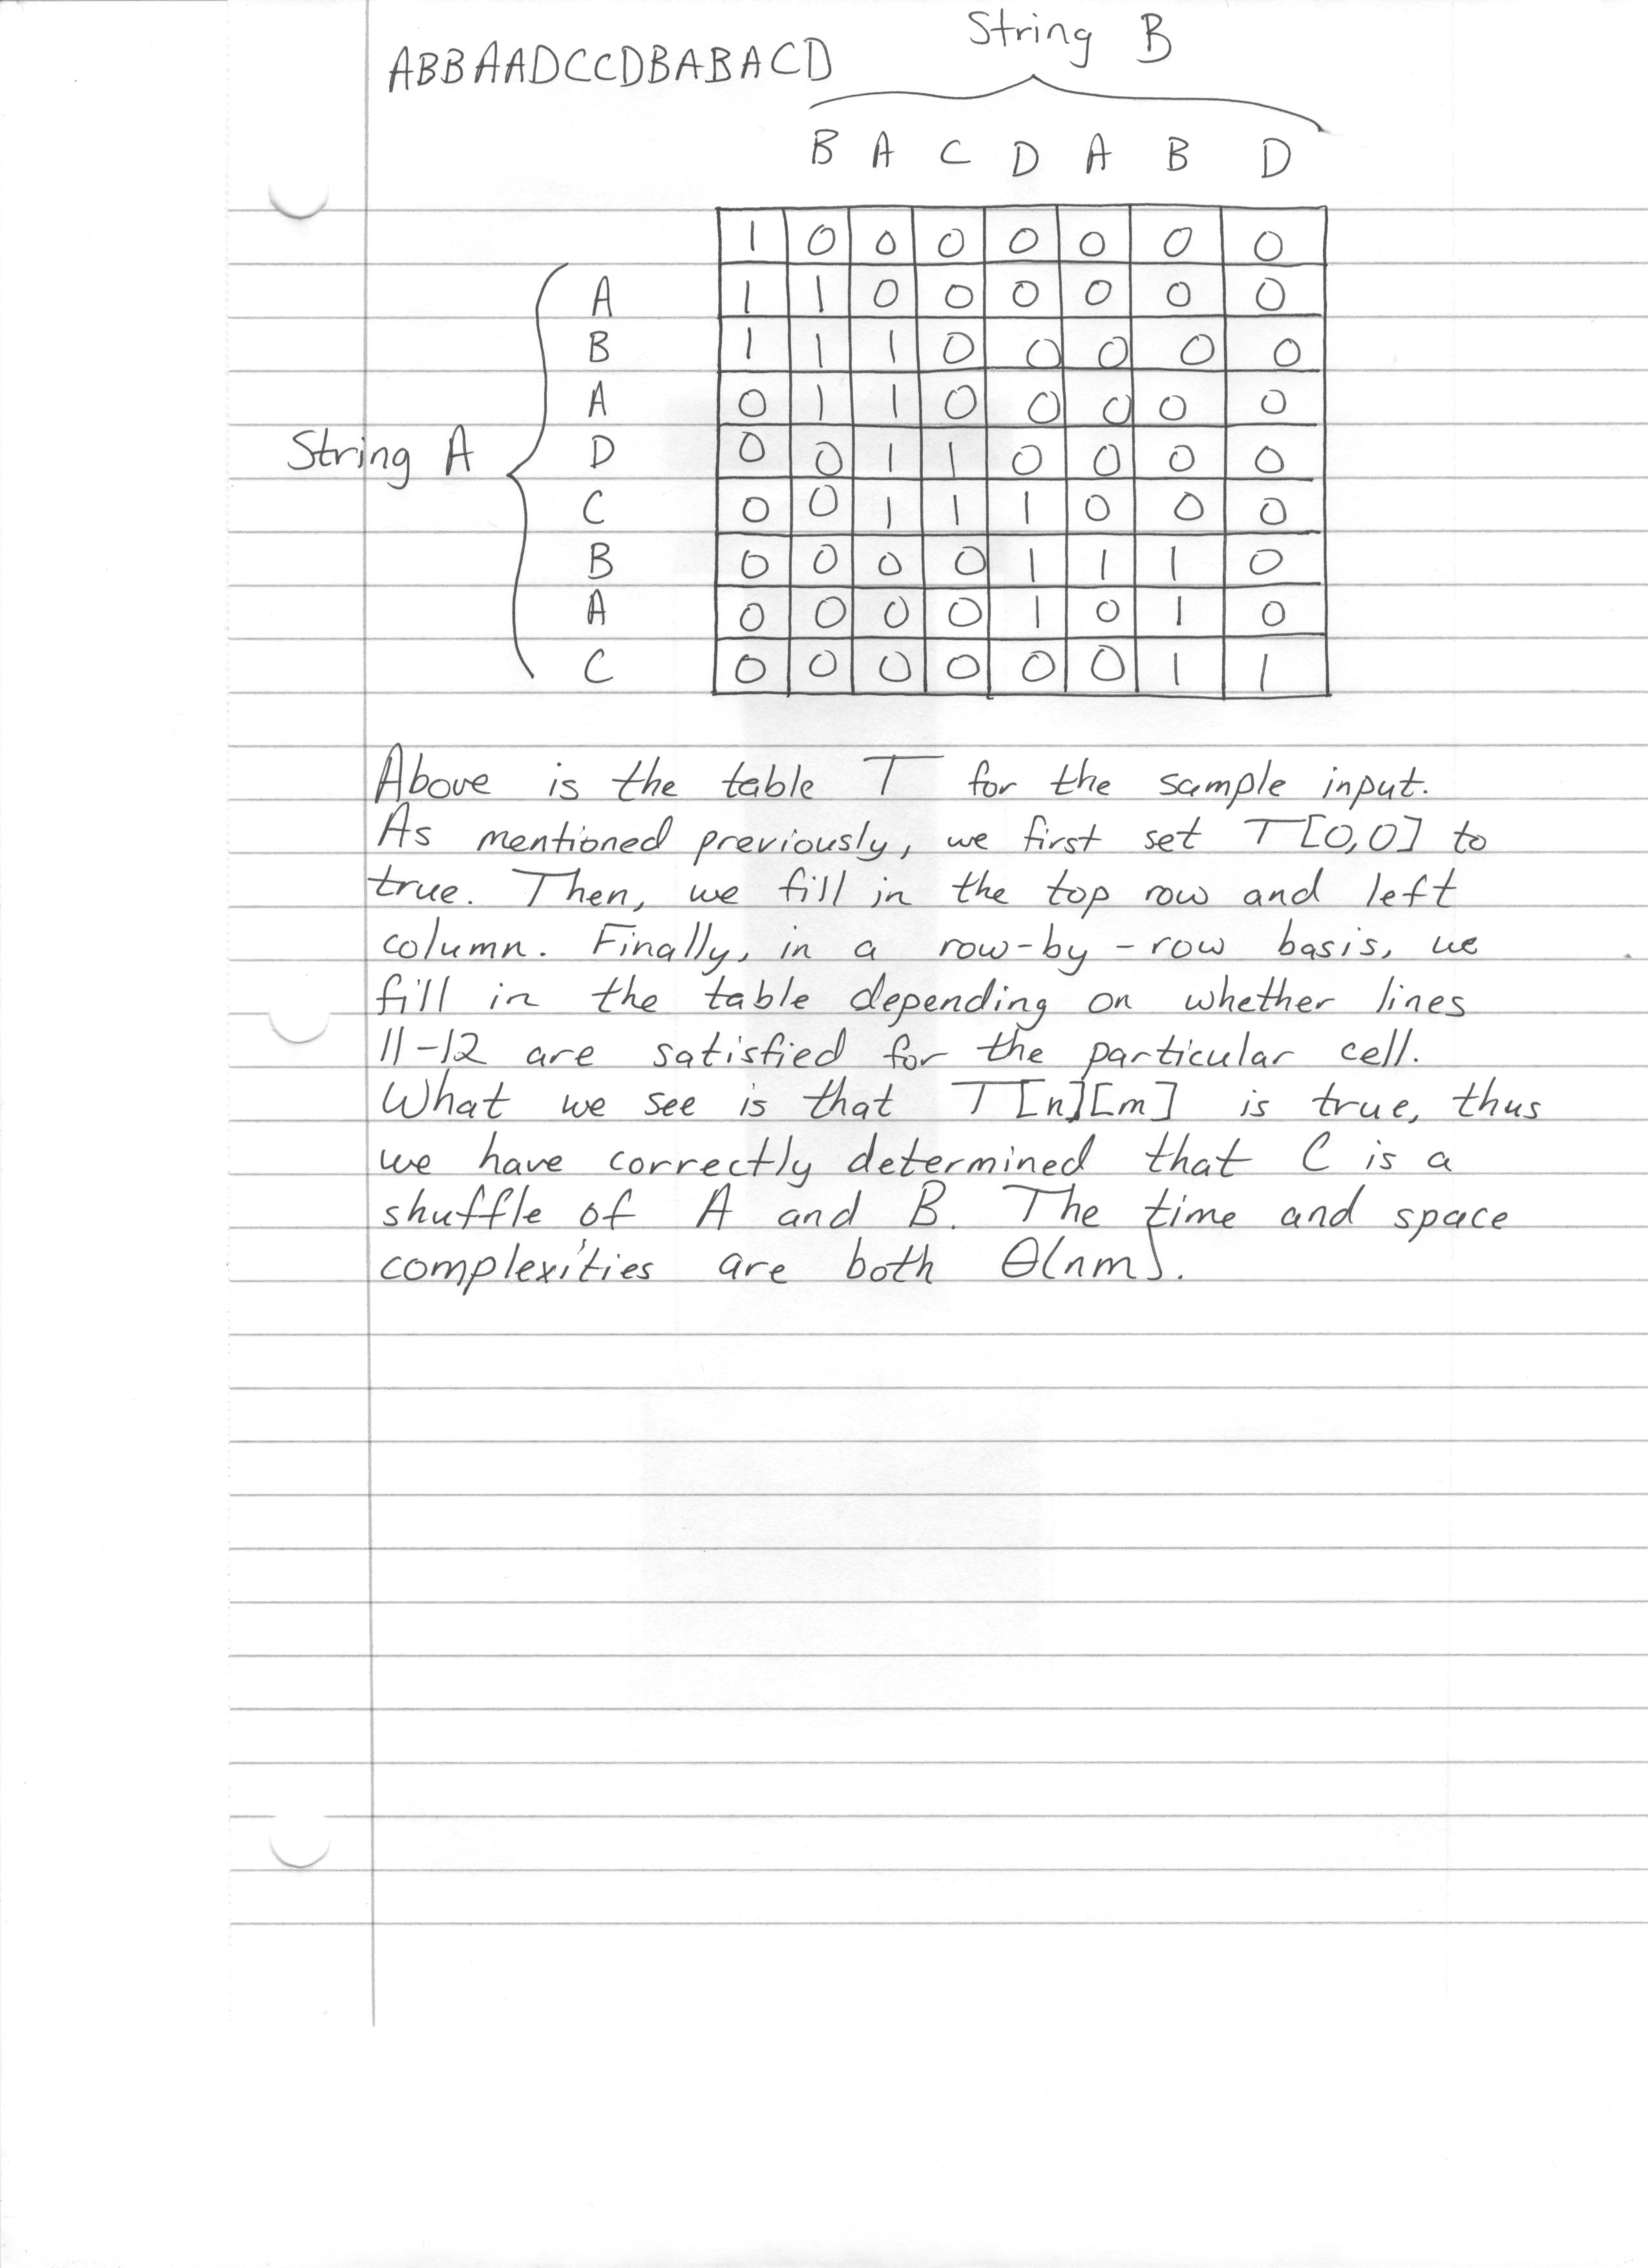 String B
ABBAADCCDBABACD
B A C D A B D
1 0 0 0 0 0 0 0
A 1 1 0 0 0 0 0 0
B 1 1 1 0 0 0 0 0
A 0 1 1 0 0 0 0 0
String A
D 0 0 1 1 0 0 0 0
C 0 0 1 1 1 0 0 0
B 0 0 0 0 1 1 1 0
A 0 0 0 0 1 0 1 0
C 0 0 0 0 0 0 1 1
Above is the table T for the sample input.
As mentioned previously, we first set T[0,0] to
true. Then, we fill in the top row and left
column. Finally, in a row-by-row basis, we
fill in the table depending on whether lines
11-12 are satisfied for the particular cell.
What we see is that T[n][m] is true, thus
we have correctly determined that C is a
shuffle of A and B. The time and space
complexities are both Θ(nm).